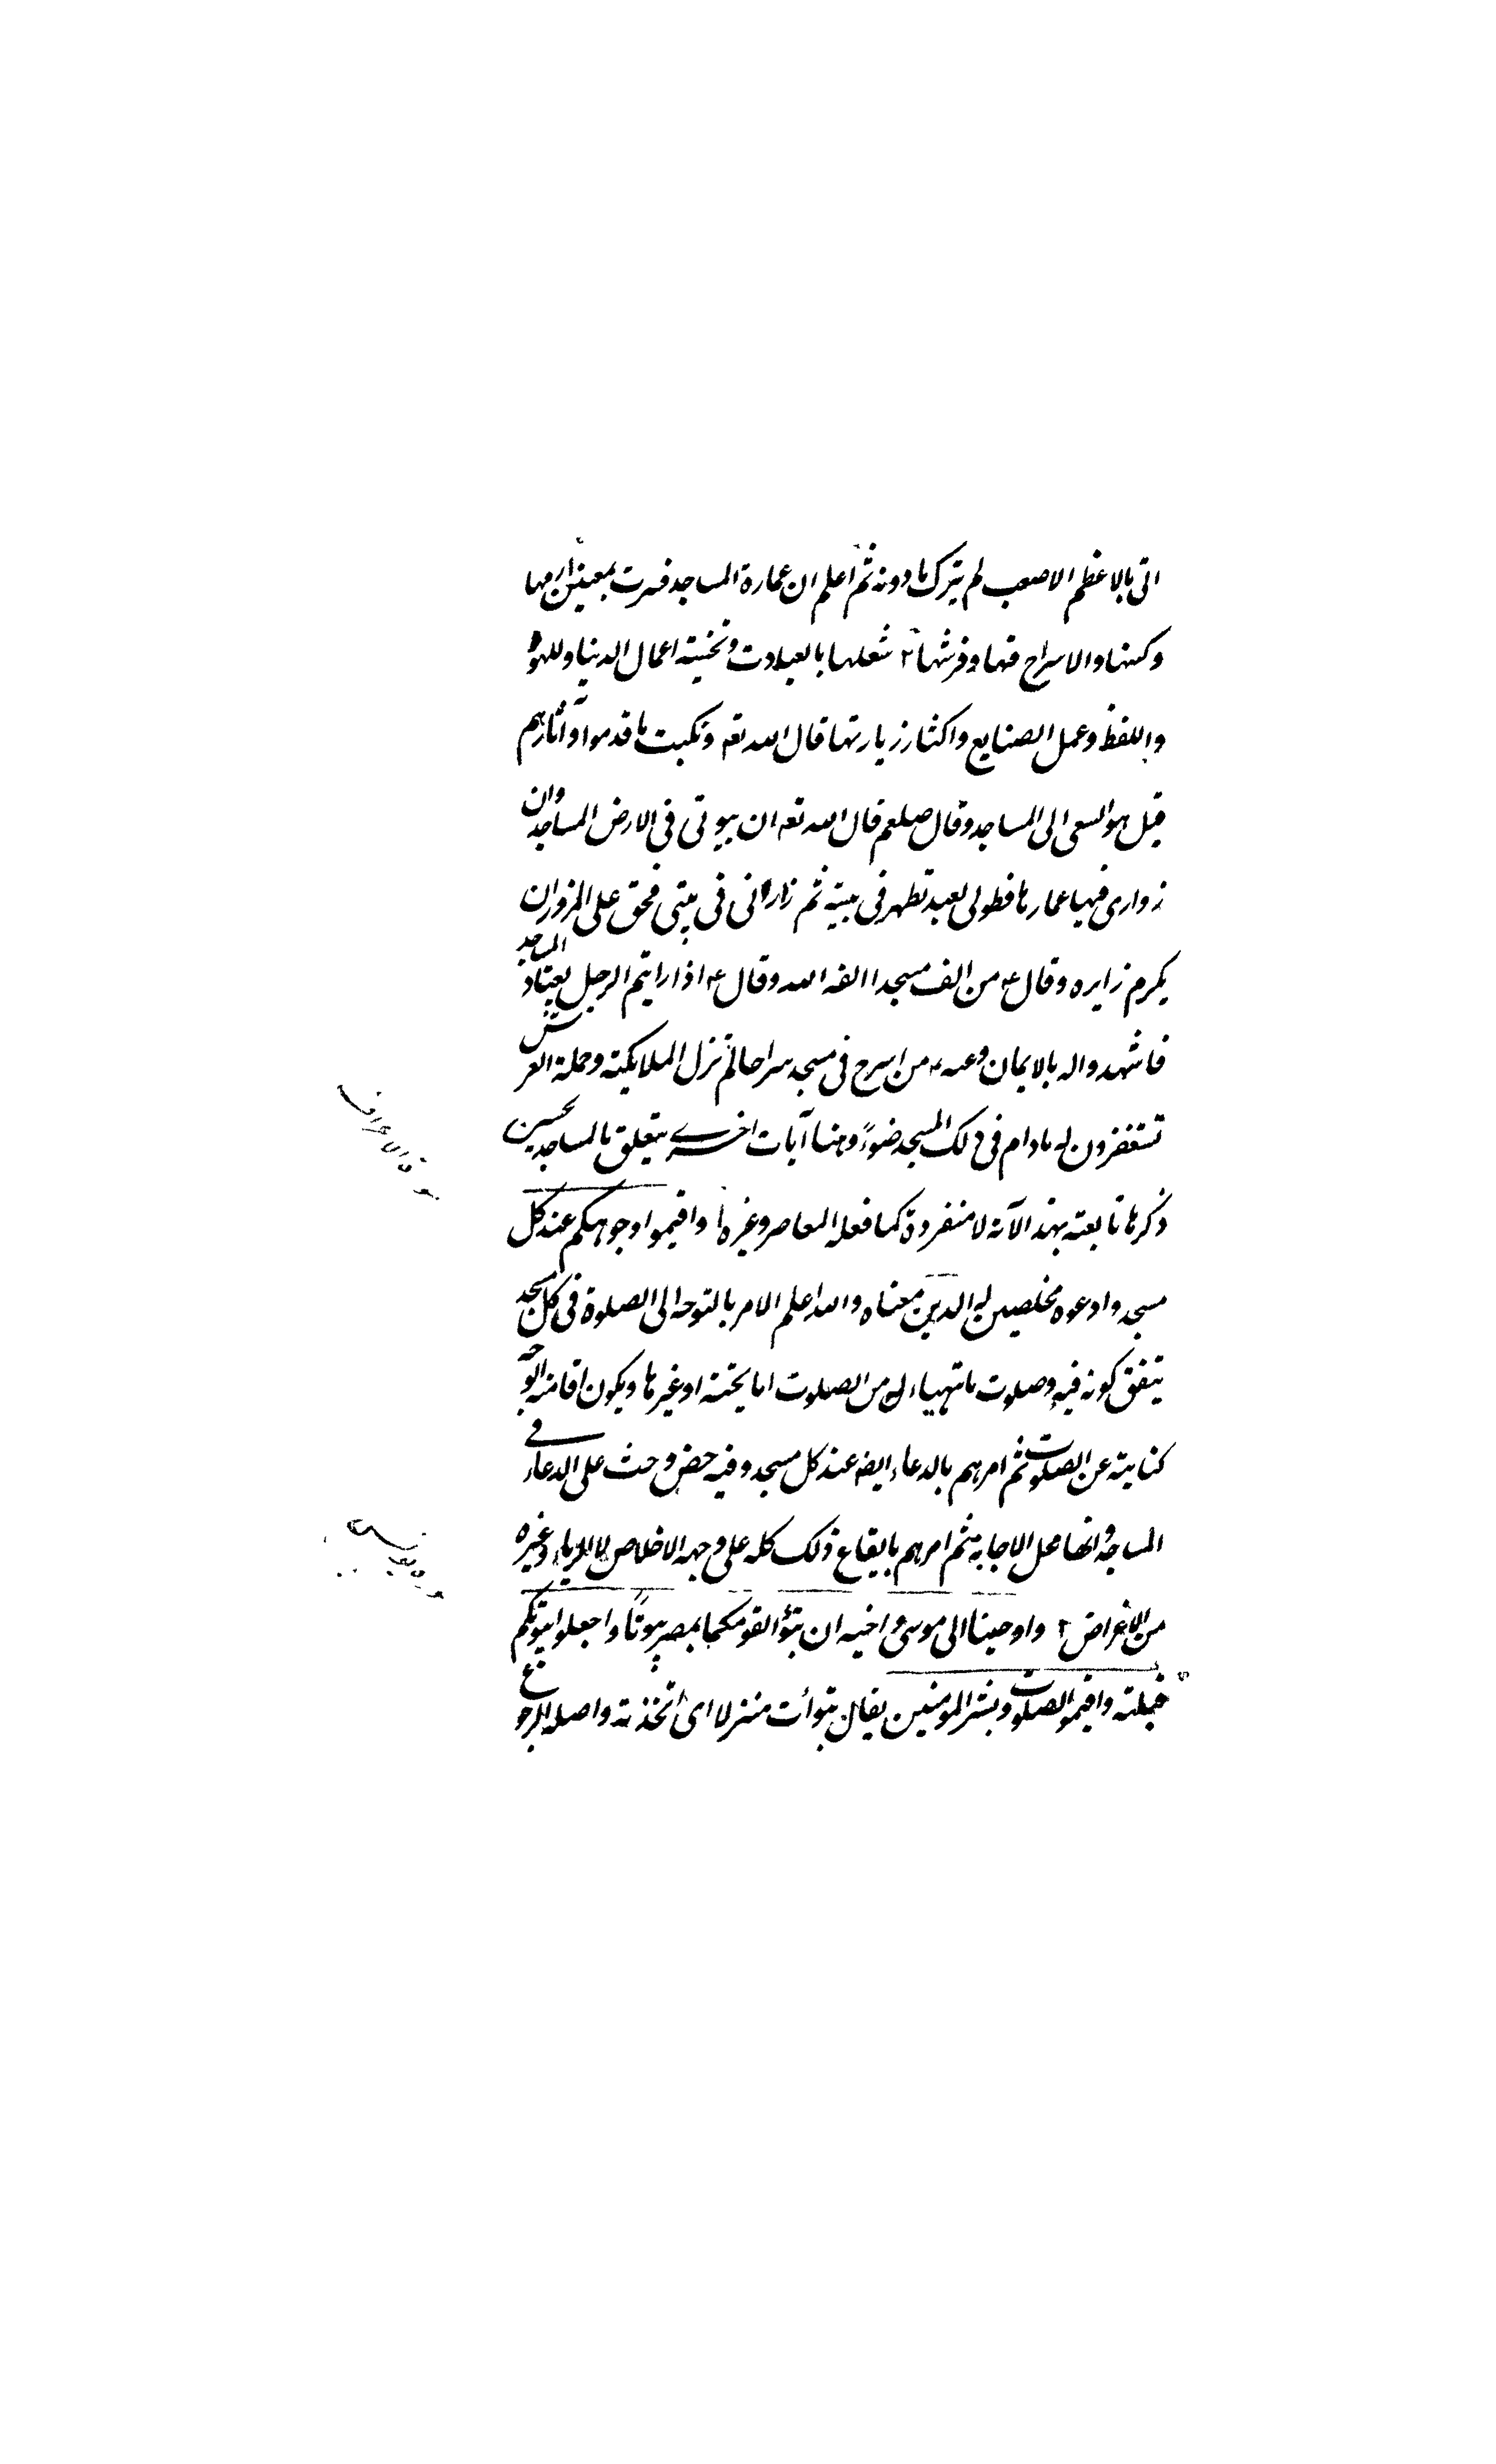 اتى بالاعظم الاصعب لم يترك ما دونه ثم اعلم ان عمارة المساجد فسرت بمعينين ا رمها
وكنسها والاسراج فيها وفرشها ٢ شغلها بالعبادت وتخيته اعمال الدنيا واللهو
واللفظ وعمل الصنايع واكثار زيارتها قال الله تعه ونكبت ما قدموا وآثارهم
قيل هو السعى الى المساجد وقال صلعم قال الله تعه ان بيوتى فى الارض المساجد وان
زوارى فيها عمارها فطوبى لعبد تطهر فى بيته ثم زارنى فى بيتى فحق على المزور ان
يكرم زايره وقال ع من الف مسجدا الفه الله وقال ع اذا رايتم الرجل يعتاد المساجد
فاشهدوا له بالايمان وعنه ع من اسرج فى مسجد سراجا لم تزل الملايكة وحملة العرش
تستغفرون له مادام فى ذلك المسجد ضوءً وهنا آيات اخرى يتعلق بالمساجد يحسين
ذكرها تابعته بهذه الآية لا منفردة كما فعله المعاصر وغيره ا واقيموا وجوهكم عند كل
مسجد وادعوه مخلصين له الدين معناه والله اعلم الامر بالتوجه الى الصلوة فى كل مسجد
يتفق كونه فيه وصلوت ما تتهياء له من الصلوت اما تحيته او غيرها ويكون اقامته الوجه
كناية عن الصلوت ثم امرهم بالدعاء ايضه عند كل مسجد وفيه حض وحث على الدعاء فى
المساجد وانها محل الاجابة ثم امرهم بايقاع ذلك كله على وجه الاخلاص لا للرياء وغيره
من الاغراض ٢ واوحينا الى موسى واخيه ان تبوّءا لقومكما بمصر بيوتًا واجعلوا بيوتكم
قبلة واقيموا الصلوت وبشر المومنين يقال تبوأت منزلا اى اتخذته واصله الرجوع